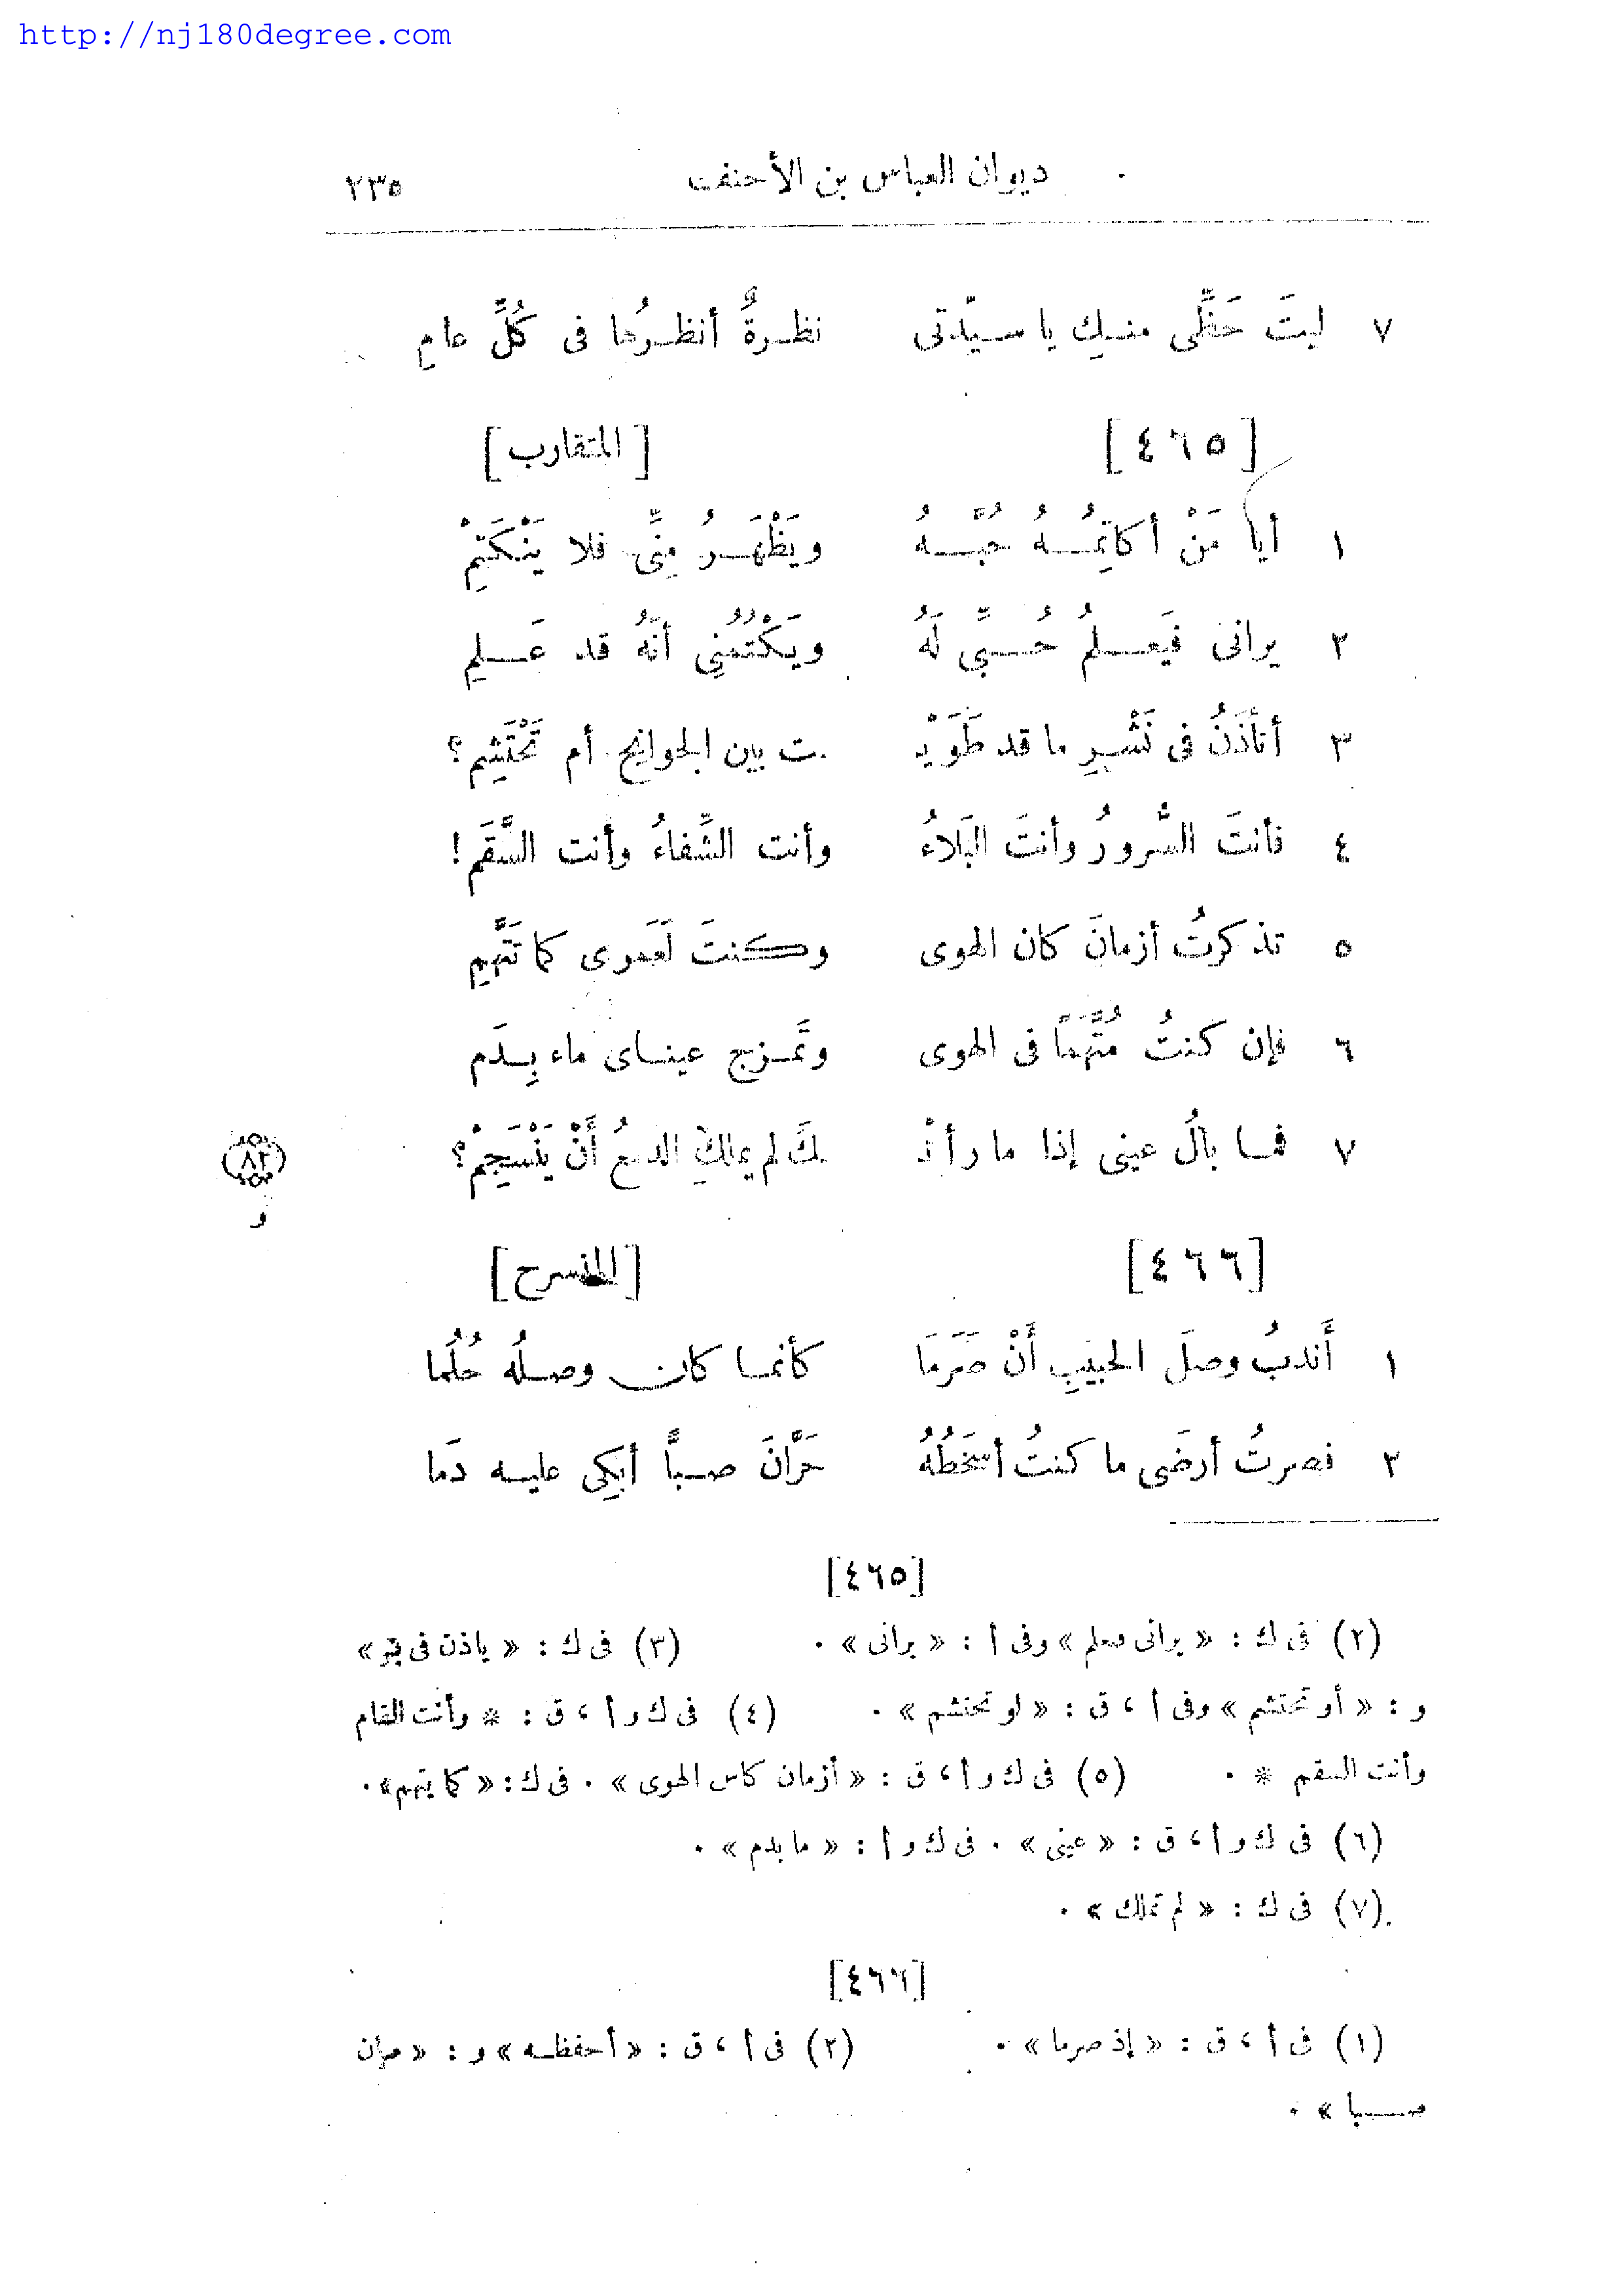 http://nj180degree.com
ديوان العباس بن الأحنف ٢٣٥
٧ ليتَ حَظِّى منك يا سيّدتى نظرةٌ أنظرُها فى كُلِّ عامِ
[٤٦٥] [المتقارب]
١ أيا مَنْ أكاتِمُهُ حُبَّهُ ويَظْهَرُ مِنِّى فلا يَنْكَتِمْ
٢ يرانى فَيَعلمُ حُبِّى لَهُ ويَكْتُمُنِى أنَّهُ قد عَلِم
٣ أتأذَنُ فى نَشْرِ ما قد طَوَيْـ ـت بين الجوانِح أم تَحْتَشِم؟
٤ فأنتَ السُّرورُ وأنتَ البَلاءُ وأنت الشِّفاءُ وأنت السَّقَم!
٥ تذكرتُ أزمانَ كان الهوى وكنتَ لَعَمرى كما تَتَّهِم
٦ فإن كنتُ مُتَّهَمًا فى الهوى وتَمزج عيناى ماء بِدَم
٧ فما بالُ عينى إذا ما رأتْـ ـكَ لم يملكِ الدمعُ أَنْ يَنْسَجِمْ؟
(٨٢)
و
[٤٦٦] [المنسرح]
١ أَندبُ وصلَ الحبيبِ أَنْ صَرَمَا كأنما كان وصلُه حُلُما
٢ فصرتُ أرضَى ما كنتُ أسخَطُهُ حَرَّانَ صبًّا أبكِى عليه دَما
[٤٦٥]
(٢) فى ك : « يرانى فعلم » وفى أ : « برانى » . (٣) فى ك : « ياذن فى »
و : « أو تحتشم » وفى أ ، ق : « لو تحتشم » . (٤) فى ك و أ ، ق : * وأنت
وأنت السقم * . (٥) فى ك و أ ، ق : « أزمان كاس الهوى » . فى ك : « كما يتهم » .
(٦) فى ك و أ ، ق : « عينى » . فى ك و أ : « ما بدم » .
(٧) فى ك : « لم تملك » .
[٤٦٦]
(١) فى أ ، ق : « إذ صرما » . (٢) فى أ ، ق : « أحفظه » و :
صبا » .